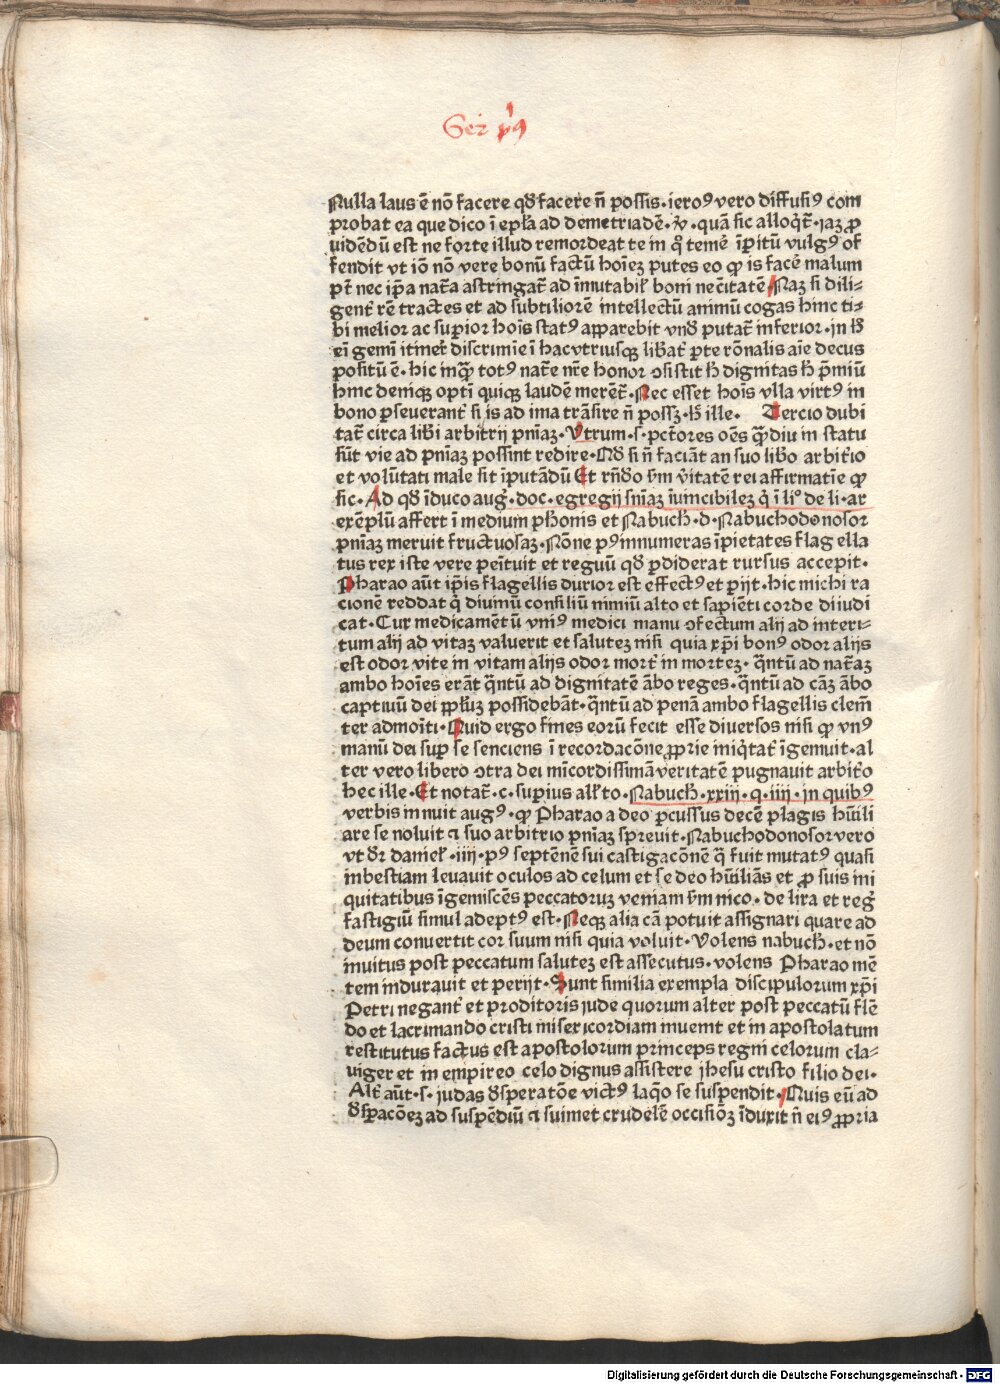 Ser p̄ꝰ
Nulla laus ē nō facere qđ facere n̄ possis·ieroꝰ vero diffusiꝰ com
probat ea que dico ī epl̄a ad demetriadē·ꝟ·quā sic alloq̄t̄·iaz ꝓ
vidēdū est ne forte illud remordeat te in q̊ temē īpitū vulgꝰ of
fendit vt iō nō vere bonū factū hoīez putes eo ꝙ is facē malum
p̄t nec ip̄a nat̄a astringat̄ ad īmutabil̄ boni nec̄itatē Naz si dili⸗
gent̄ rē tractes et ad subtiliorē intellectū animū cogas hinc ti⸗
bi melior ac supior hoīs statꝰ apparebit vnđ putat̄ inferior·in h̄
eī gemī itīner̄ discrimīe ī hac vtriusqꝫ lib̄at̄ ꝑte rōnalis aīe decus
positū ē·hic inq̄ totꝰ nat̄e nr̄e honor ↄsistit h̄ dignitas h̄ p̄miū
hinc deniqꝫ optī quiqꝫ laudē merēt̄·Nec esset hoīs vlla virtꝰ in
bono pseuerant̄ si is ad ima trāsire n̄ possꝫ·h̄ ille· Tercio dubi
tat̄ circa lib̄i arbitrij pnīaz·Vtrum·s·pct̄ores oēs q̄diu in statu
sūt vie ad pnīaz possint redire·Qđ si n̄ faciāt an suo lib̄o arbit̄io
et volūtati male sit īputādū Et rn̄do s̄m v̄itatē rei affirmatīe ꝙ
sic·Ad qđ īduco auḡ·doc·egregij snīaz īuincibilez q̄ ī li° de li·ar
exēplū affert ī medium ph̄onis et Nabuch̄·d·Nabuchodonosor
pnīaz meruit fructuosaz·Nōne pꝰ innumeras īpietates flagella
tus rex iste vere penītuit et regnū qđ pdiderat rursus accepit·
Pharao aūt ip̄is flagellis durior est effectꝰ et pijt·hic michi ra
cionē reddat q̄ diuinū consiliū nimiū alto et sapiēti corde diiudi
cat·Cur medicamētū vniꝰ medici manu ↄfectum alij ad interi⸗
tum alij ad vitaz valuerit et salutez nisi quia xp̄i bonꝰ odor alijs
est odor vite in vitam alijs odor mort̄ in mortez·q̄ntū ad nat̄az
ambo hoīes erāt q̄ntū ad dignitatē ābo reges·q̄ntū ad cāz ābo
captiuū dei ppl̄uz possidebāt·q̄ntū ad penā ambo flagellis clem̄
ter admoīti·Quid ergo fines eorū fecit esse diuersos nisi ꝙ vnꝰ
manū dei sup se senciens ī recordacōne ꝓprie miq̄tat̄ īgemuit·al
ter vero libero ↄtra dei mīcordissimā veritatē pugnauit arbit̄o
hec ille·Et notat̄·c·supius all̄to·Nabuch̄·xxiij·q·iiij·in quibꝰ
verbis innuit augꝰ·ꝙ Pharao a deo pcussus decē plagis hūili
are se noluit ⁊ suo arbitrio pnīaz spreuit·Nabuchodonosor vero
vt đr daniel̄·iiij·pꝰ septēnē sui castigacōnē q̄ fuit mutatꝰ quasi
in bestiam leuauit oculos ad celum et se deo hūiliās et ꝓ suis ini
quitatibus īgemiscēs peccatoruꝫ veniam s̄m nico·de lira et reḡ
fastigiū simul adeptꝰ est·Neqꝫ alia cā potuit assignari quare ad
deum conuertit cor suum nisi quia voluit·Volens nabuch̄·et nō
inuitus post peccatum salutez est assecutus·volens Pharao mē
tem indurauit et perijt·Sunt similia exempla discipulorum xp̄i
Petri negant̄ et proditoris iude quorum alter post peccatū flē
do et lacrimando cristi misericordiam inuenit et in apostolatum
restitutus factus est apostolorum princeps regni celorum cla⸗
uiger et in empireo celo dignus assistere jhesu cristo filio dei·
Alt̄ aūt·s·iudas đsperatōe victꝰ laq̊o se suspendit·Quis eū ad
đspacōez ad suspēdiū ⁊ suimet crudelē occisiōꝫ īduxit n̄ eiꝰ ꝓpria
Digitalisierung gefördert durch die Deutsche Forschungsgemeinschaft - DFG